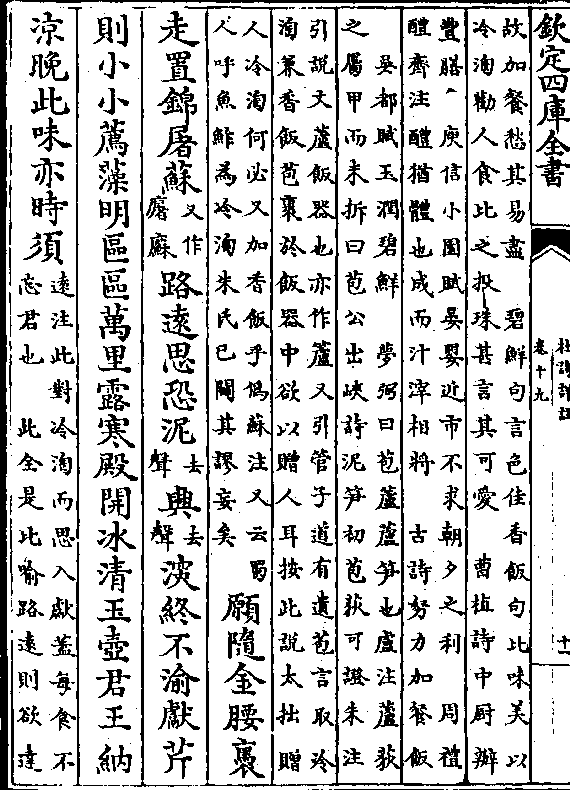 欽定四庫全書
杜詩詳註
卷十九
十一
故加餐愁其易盡　碧鮮句言色佳香飯句比味美以
冷淘勸人食此之投珠甚言其可愛　曹植詩中厨辦
豐膳　庾信小園賦晏嬰近市不求朝夕之利　周禮
醴齊注醴猶體也成而汁滓相將　古詩努力加餐飯
吳都賦玉潤碧鮮　夢弼曰苞蘆蘆笋也盧注蘆荻
之屬甲而未拆曰苞公出峽詩泥笋初苞荻可證朱注
引説文蘆飯器也亦作蘆又引管子道有遺苞言取冷
淘兼香飯苞裹於飯器中欲以贈人耳按此説太拙贈
人冷淘何必又加香飯乎偽蘇注又云蜀
人呼魚鮓為冷淘朱氏已闢其謬妄矣
願隨金腰褭
走置錦屠蘇又作廜路遠思恐泥去聲興去聲深終不渝獻芹
則小小薦藻明區區萬里露寒殿開冰清玉壺君王納
涼晚此味亦時須
遠注此對冷淘而思入獻蓋每食不
忘君也　此全是比喻路遠則欲達